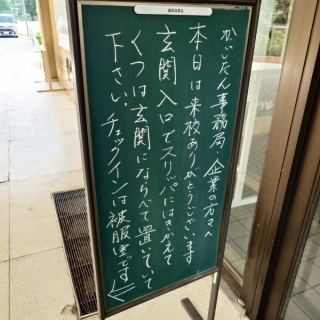 がじたん事務局 企業の方々へ
本日は来校ありがとうございます
玄関入口でスリッパにはきかえて
くつは玄関にならべて置いていて
下さい。チェックインは被服室です